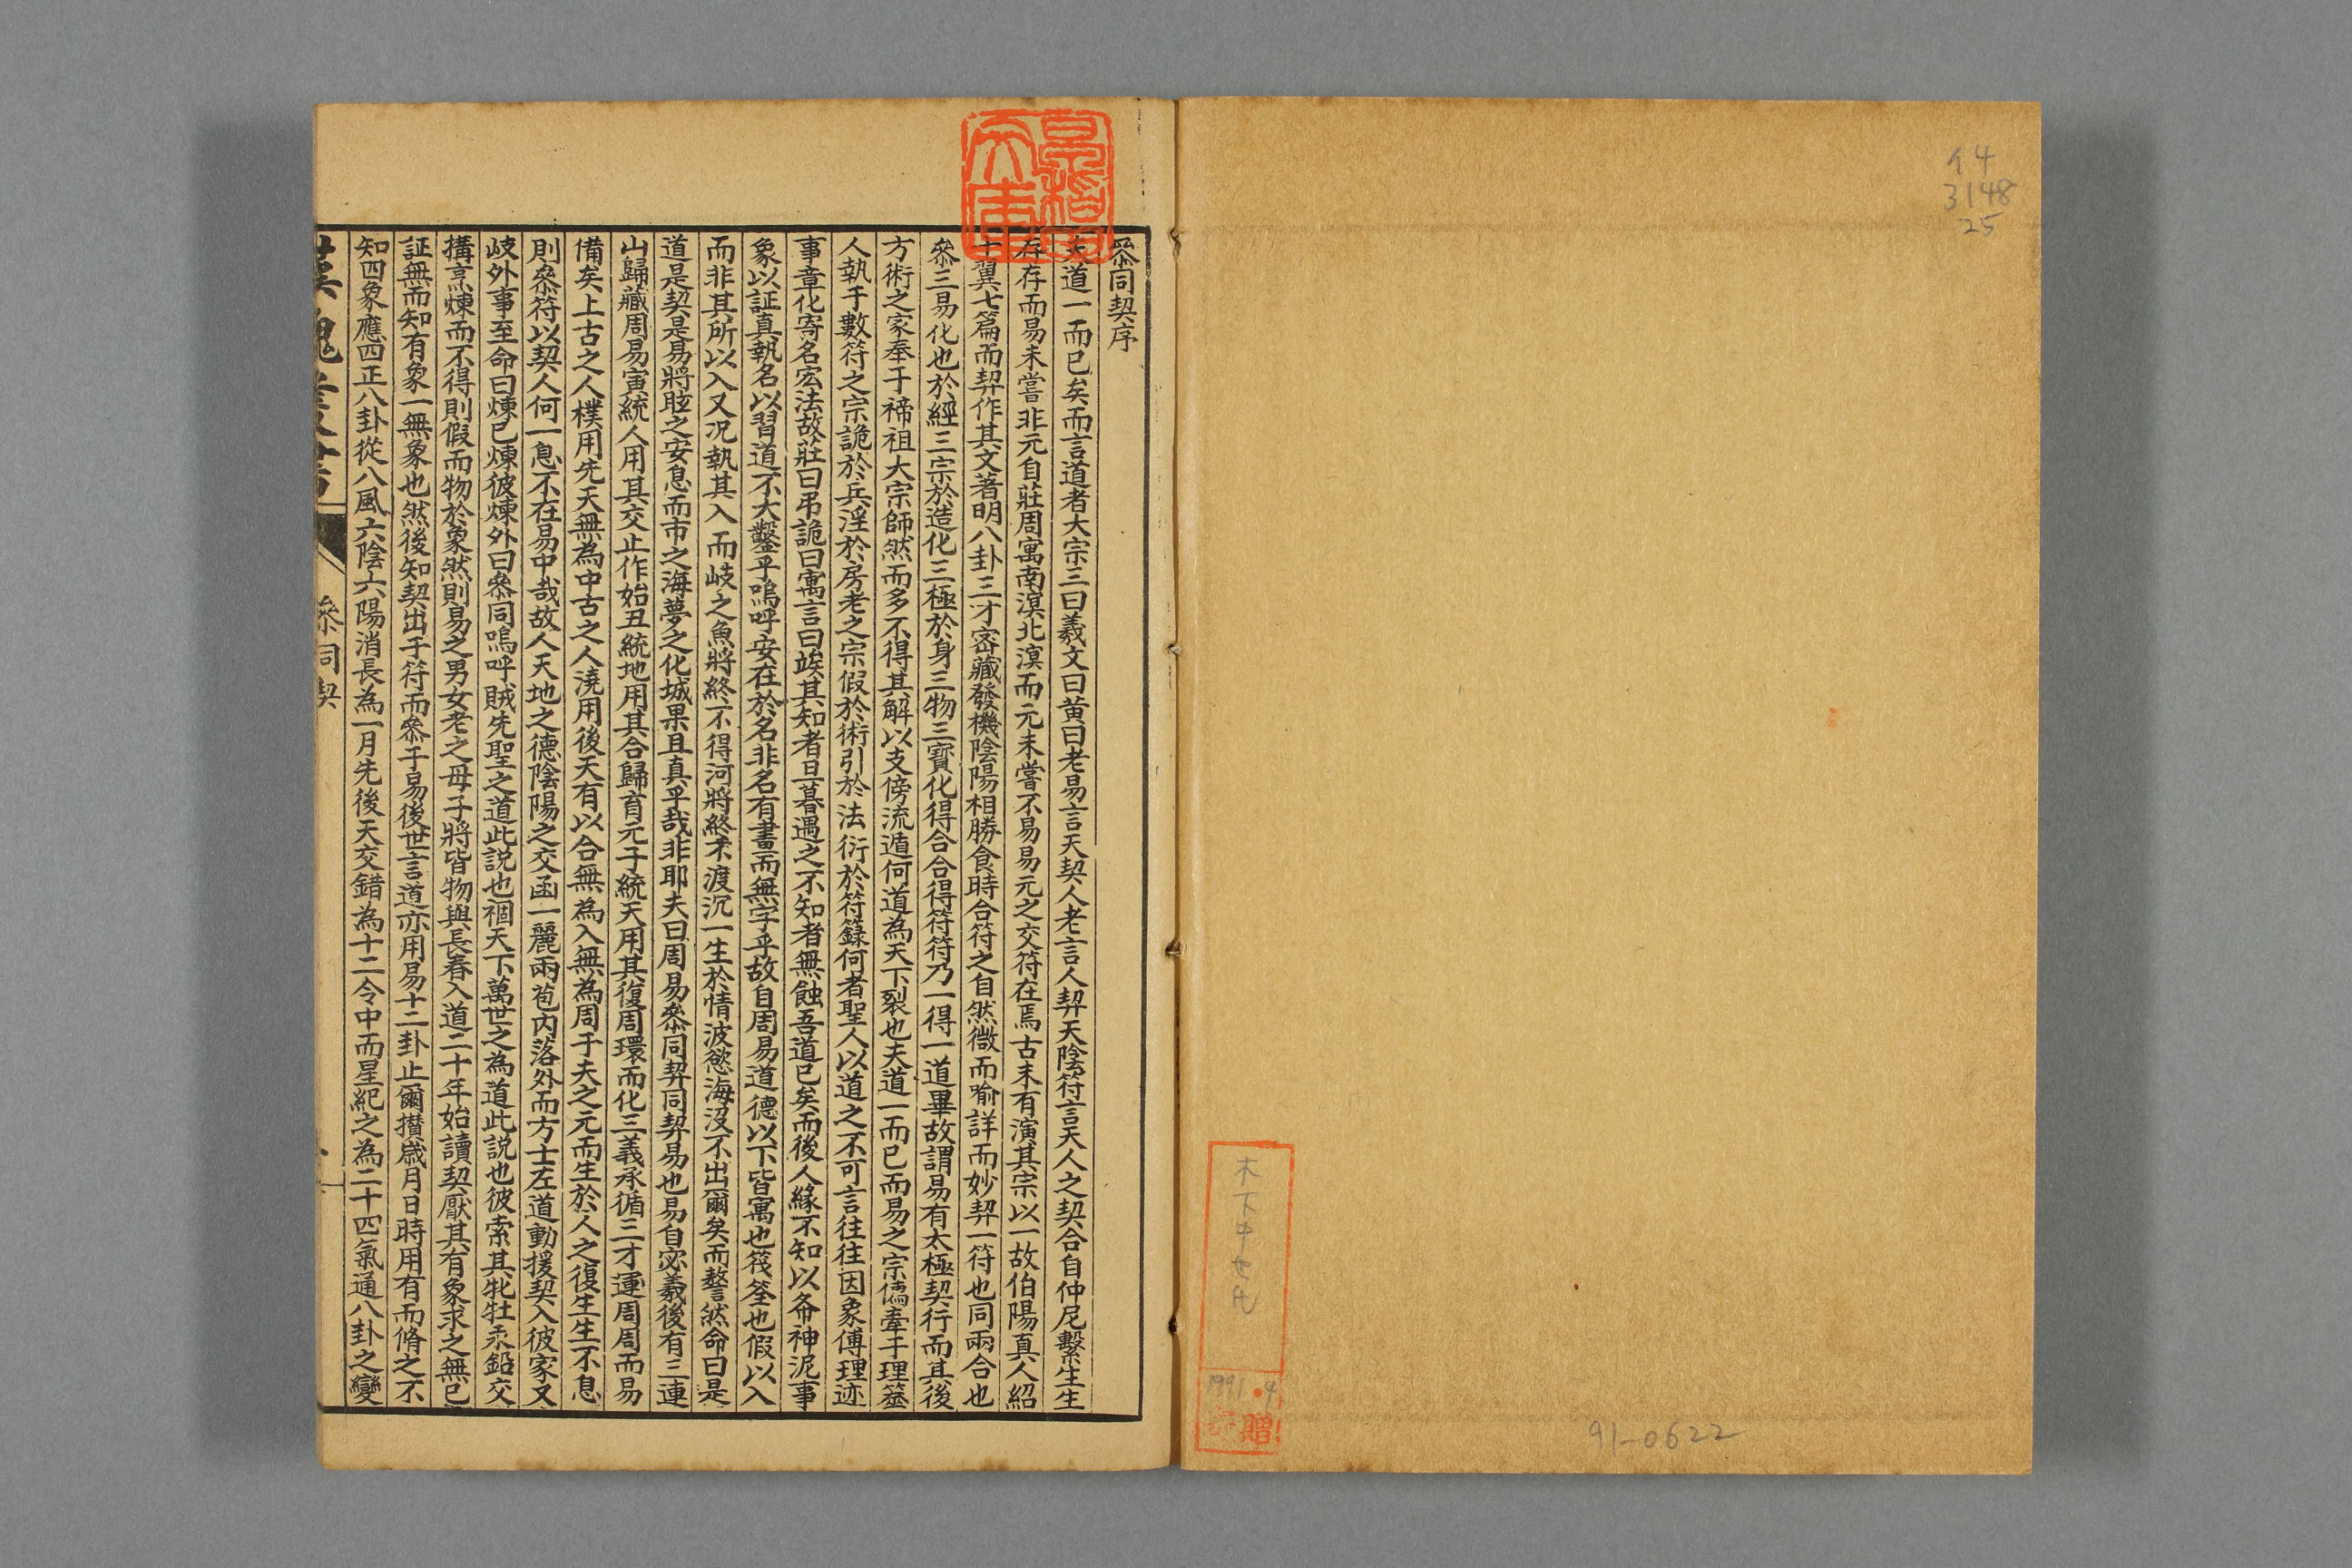 94
3148
25
木下中也氏
1991.9
贈
91-0622
參同契序
夫道一而已矣而言道者大宗三曰羲文曰黄曰老易言天契人老言人契天陰符言天人之契合自仲尼繫生生
存存而易未嘗非元自莊周寓南溟北溟而元未嘗不易易元之交符在焉古未有演其宗以一故伯陽真人紹
十翼七篇而契作其文著明八卦三才宻藏發機陰陽相勝食時合符之自然微而喻詳而妙契一符也同兩合也
叅三易化也於經三宗於造化三極於身三物三寶化得合合得符符乃一得一道畢故謂易有太極契行而其後
方術之家奉于禘祖大宗師然而多不得其解以支傍流遁何道為天下裂也夫道一而已而易之宗儒牽于理簭
人執于數符之宗詭於兵淫於房老之宗假於術引於法衍於符籙何者聖人以道之不可言往往因象傅理迹
事章化寄名宏法故莊曰吊詭曰寓言曰竢其知者旦暮遇之不知者無蝕吾道已矣而後人緣不知以命神泥事
象以証真執名以習道不大鑿乎嗚呼安在於名非名有畫而無字乎故自周易道德以下皆寓也筏筌也假以入
而非其所以入又况執其入而岐之魚將終不得河將終不渡沉一生於情波慾海沒不出爾矣而嗸然命曰是
道是契是易將眩之安息而市之海夢之化城果且真乎哉非耶夫曰周易叅同契同契易也易自宓羲後有三連
山歸藏周易寅統人用其交止作始丑統地用其合歸育元子統天用其復周環而化三義承循三才運周周而易
備矣上古之人樸用先天無為中古之人澆用後天有以合無為入無為周于夫之元而生於人之復生生不息
則叅符以契人何一息不在易中哉故人天地之德陰陽之交函一麗兩苞内落外而方士左道動援契入彼家又
岐外事至命曰煉已煉彼煉外曰叅同嗚呼賊先聖之道此説也禍天下萬世之為道此説也彼索其牝牡汞鉛交
搆烹煉而不得則假而物於象然則易之男女老之母子將皆物與長春入道二十年始讀契厭其有象求之無已
証無而知有象一無象也然後知契出于符而叅于易後世言道亦用易十二卦止爾攢歲月日時用有而脩之不
知四象應四正八卦從八風六陰六陽消長為一月先後天交錯為十二令中而星紀之為二十四氣通八卦之變
漢魏叢書
叅同契